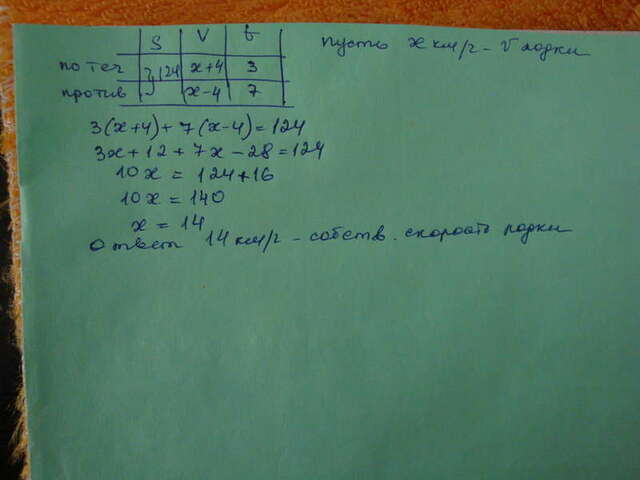 S V t пусть x км/г - V лодки
по теч } 124 x+4 3
против x-4 7
3(x+4)+7(x-4)=124
3x+12+7x-28=124
10x = 124+16
10x = 140
x = 14
ответ 14 км/г - собств. скорость лодки